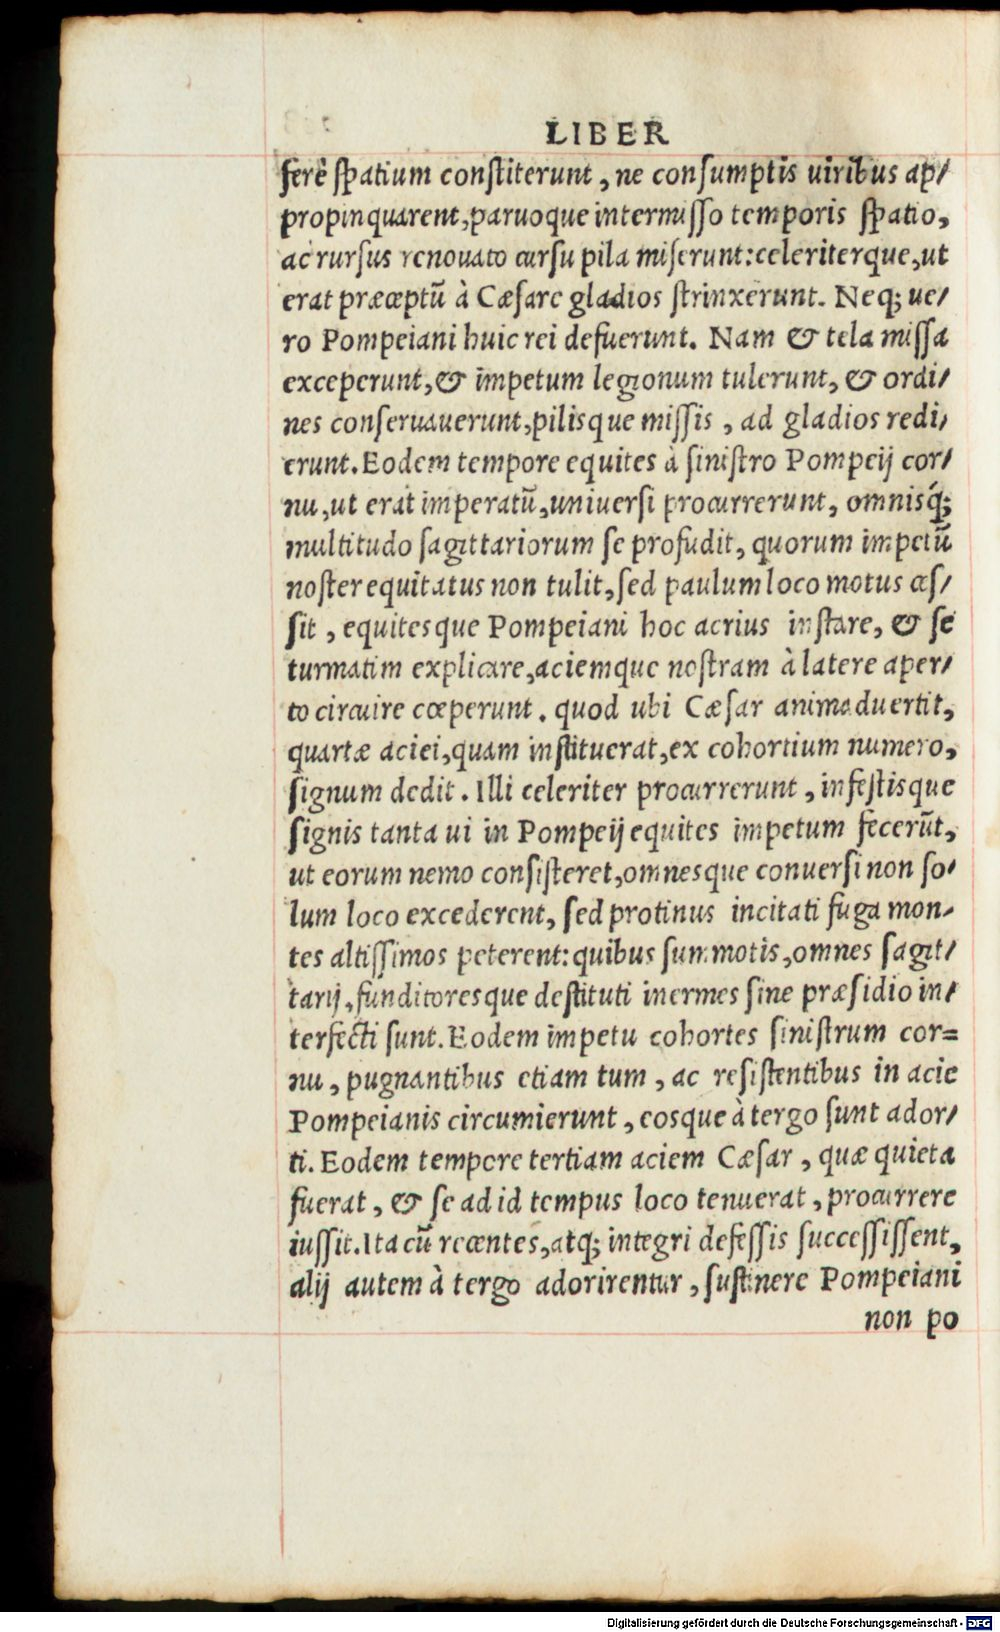 LIBER
ferè ſpatium conſtiterunt, ne conſumptis uiribus ap/
propinquarent, paruoque intermiſſo temporis ſpatio,
ac rurſus renouato curſu pila miſerunt: celeriterque, ut
erat præceptũ à Cæſare gladios ſtrinxerunt. Neq; ue/
ro Pompeiani huic rei defuerunt. Nam & tela miſſa
exceperunt, & impetum legionum tulerunt, & ordi/
nes conſeruauerunt, pilisque miſſis, ad gladios redi/
erunt. Eodem tempore equites à ſiniſtro Pompeij cor/
nu, ut erat imperatũ, uniuerſi procurrerunt, omnisq́;
multitudo ſagittariorum ſe profudit, quorum impetũ
noſter equitatus non tulit, ſed paulum loco motus ceſ/
ſit, equitesque Pompeiani hoc acrius inſtare, & ſe
turmatim explicare, aciemque noſtram à latere aper/
to circuire cœperunt. quod ubi Cæſar animaduertit,
quartæ aciei, quam inſtituerat, ex cohortium numero,
ſignum dedit. Illi celeriter procurrerunt, infeſtisque
ſignis tanta ui in Pompeij equites impetum fecerũt,
ut eorum nemo conſiſteret, omnesque conuerſi non ſo/
lum loco excederent, ſed protinus incitati fuga mon/
tes altiſſimos peterent: quibus ſummotis, omnes ſagit/
tarij, funditoresque deſtituti inermes ſine præſidio in/
terfecti ſunt. Eodem impetu cohortes ſiniſtrum cor=
nu, pugnantibus etiam tum, ac reſiſtentibus in acie
Pompeianis circumierunt, eosque à tergo ſunt ador/
ti. Eodem tempore tertiam aciem Cæſar, quæ quieta
fuerat, & ſe ad id tempus loco tenuerat, procurrere
iuſſit. Ita cũ recentes, atq; integri defeſſis ſucceſſiſſent,
alij autem à tergo adorirentur, ſuſtinere Pompeiani
non po
Digitalisierung gefördert durch die Deutsche Forschungsgemeinschaft - DFG